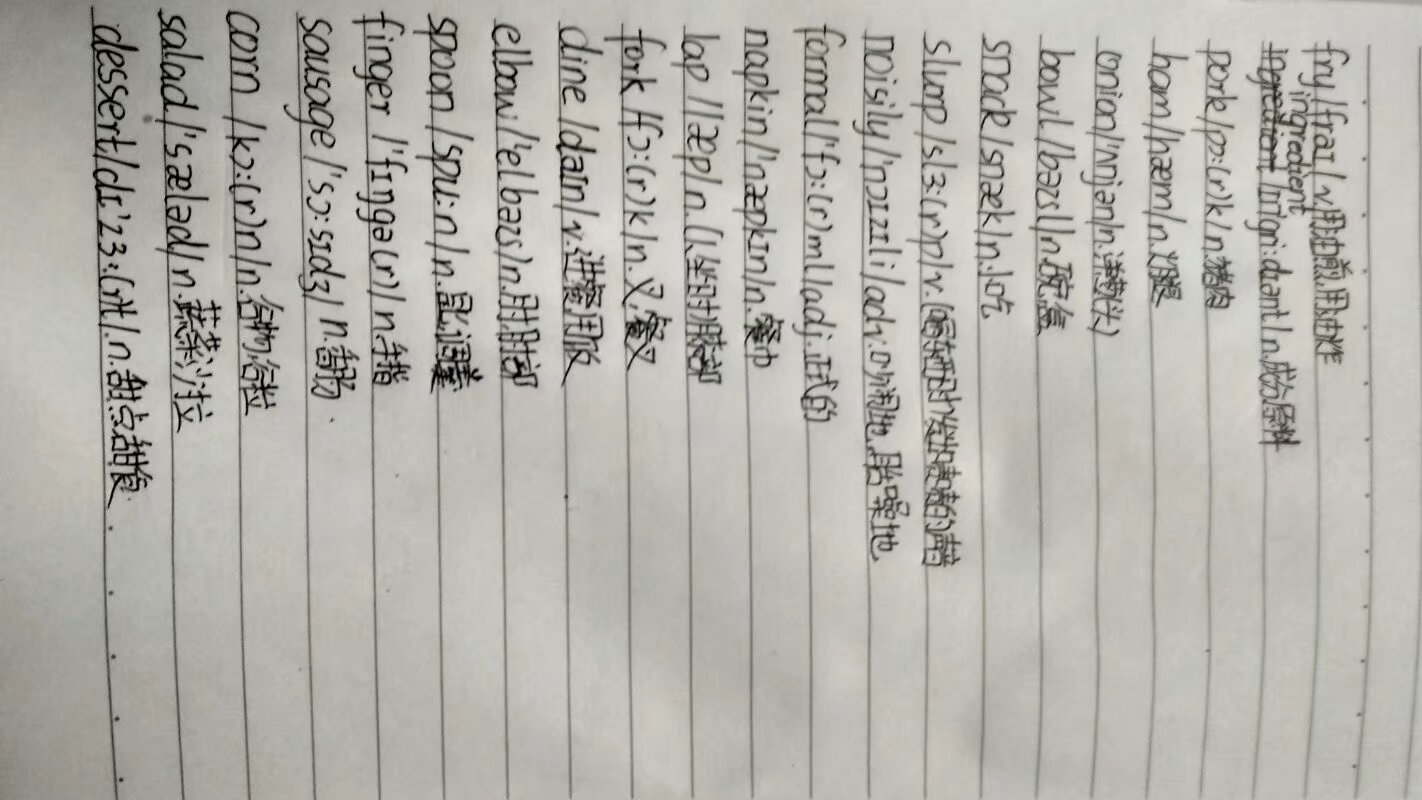 fry/fraɪ/v.用油煎,用油炸
ingredient
/ɪnˈgri:diənt/n.成分,原料
pork/pɔ:(r)k/n.猪肉
ham/hæm/n.火腿
onion/'ʌnjən/n.洋葱(头)
bowl/bəʊl/n.碗,盆
snack/snæk/n.小吃
slurp/slɜ:(r)p/v.
noisily/'nɔɪzɪli/adv.吵闹地,噪地
formal/'fɔ:(r)ml/adj.正式的
napkin/'næpkɪn/n.餐巾
lap/læp/n.(人坐时)腿部
fork/fɔ:(r)k/n.叉,餐叉
dine/daɪn/v.进餐,用饭
elbow/'elbəʊ/n.肘,肘部
spoon/spu:n/n.匙,调羹
finger/'fɪŋgə(r)/n.手指
sausage/'sɔ:sɪdʒ/n.香肠.
corn/kɔ:(r)n/n.谷物,谷粒
salad/'sæləd/n.蔬菜沙拉
dessert/dɪ'zɜ:(r)t/.n.甜点,甜食.